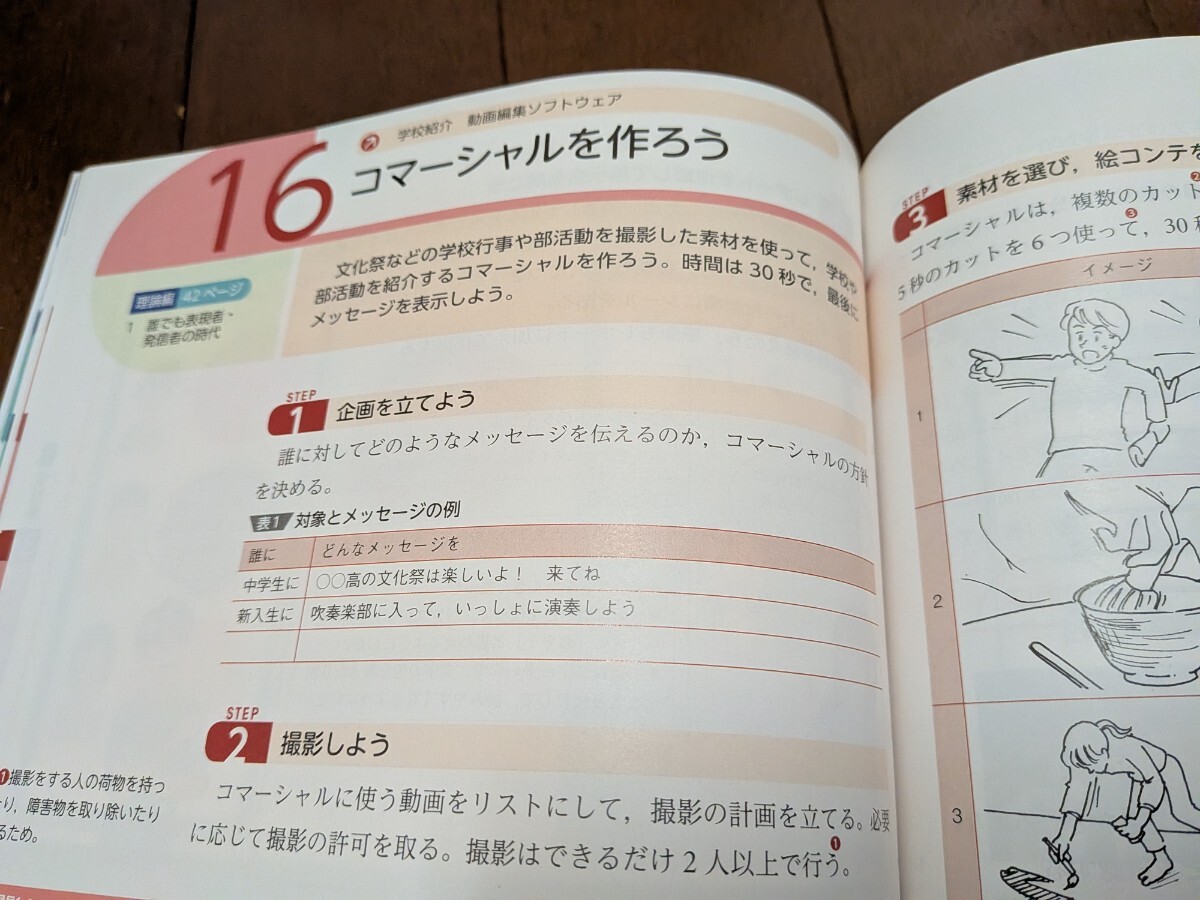 学校紹介 動画編集ソフトウェア
16 コマーシャルを作ろう
文化祭などの学校行事や部活動を撮影した素材を使って，学校や
部活動を紹介するコマーシャルを作ろう。時間は30秒で，最後に
メッセージを表示しよう。
理論編 42ページ
1 誰でも表現者・
発信者の時代
STEP
1 企画を立てよう
誰に対してどのようなメッセージを伝えるのか，コマーシャルの方針
を決める。
表1 対象とメッセージの例
誰に どんなメッセージを
中学生に 〇〇高の文化祭は楽しいよ！ 来てね
新入生に 吹奏楽部に入って，いっしょに演奏しよう
STEP
2 撮影しよう
コマーシャルに使う動画をリストにして，撮影の計画を立てる。必要
に応じて撮影の許可を取る。撮影はできるだけ2人以上で行う。
❶
❶撮影をする人の荷物を持っ
たり，障害物を取り除いたり
るため。
STEP
3 素材を選び，絵コンテを
コマーシャルは，複数のカット
❷
5秒のカットを6つ使って，30秒
❸
イメージ
1
2
3